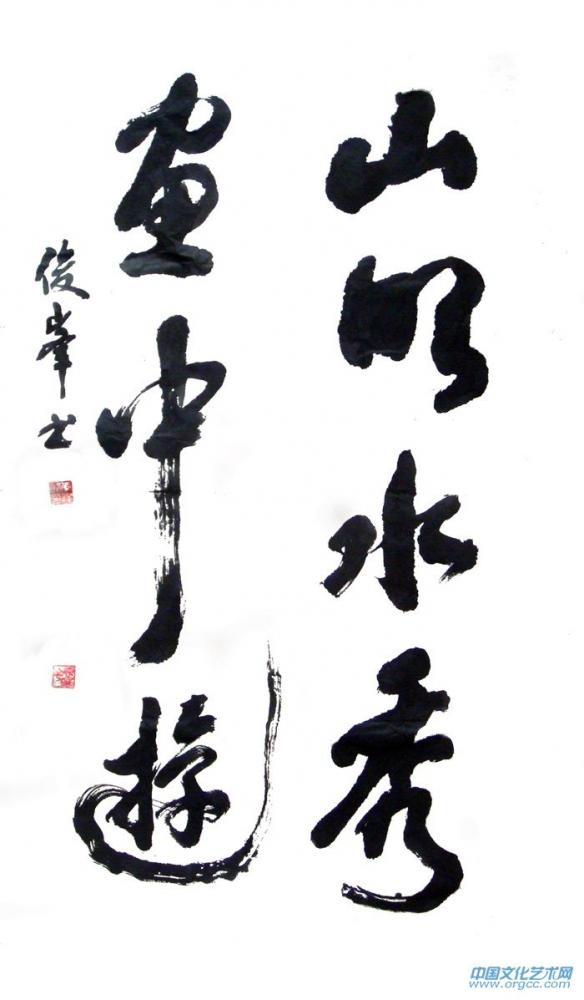 山明水秀
画中遊
俊峯书
中国文化艺术网
www.orgcc.com